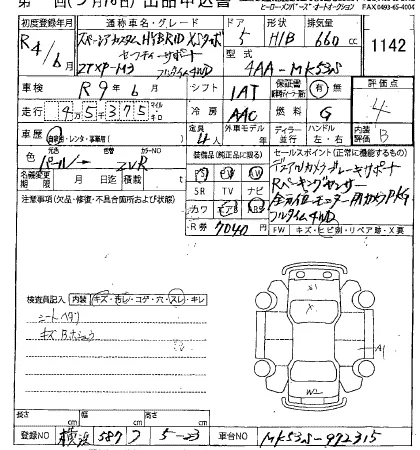 出品申込書
ヒーロー・メンバーズ オートオークション
FAX.0493-65-4004
初度登録年月 通称車名・グレード ドア 形状 排気量
R4/6月 スペーシアカスタム HYBRID XSターボ 5 H/B 660 cc 1142
セーフティーサポート 型式
2TXP-M3 フルタイム4WD 4AA-MK53S 評価点
車検 R9年6月 シフト IAT 保証書 有・無 4
走行 45375 冷房 AAC 燃料 G
車歴 自家用・レンタ・事業用 定員 4人 外車モデル ディーラー 並行 ハンドル 左・右 内装 B
色 元色 パール カラーNO ZVR 装備品(純正品に限る) セールスポイント(正常に機能するもの)
名義変更期限 月 日迄 月日
PS PW デュアルカメラブレーキサポート
注意事項(欠品・修復・不具合箇所および状態) SR TV ナビ Rパーキングセンサー
カワ エアB ABS 全方位モニター用カメラPKG
フルタイム4WD
R券 7040円 FW キズ・ヒビ割・リペア跡・X要
検査員記入 内装 キズ・汚レ・コゲ・穴・スレ・キレ
シートヘタリ
キズBホシュウ
A1
W2
長さ cm 幅 cm 高さ cm
登録NO 横浜 587 フ 5-23 車台NO MK53S-972315